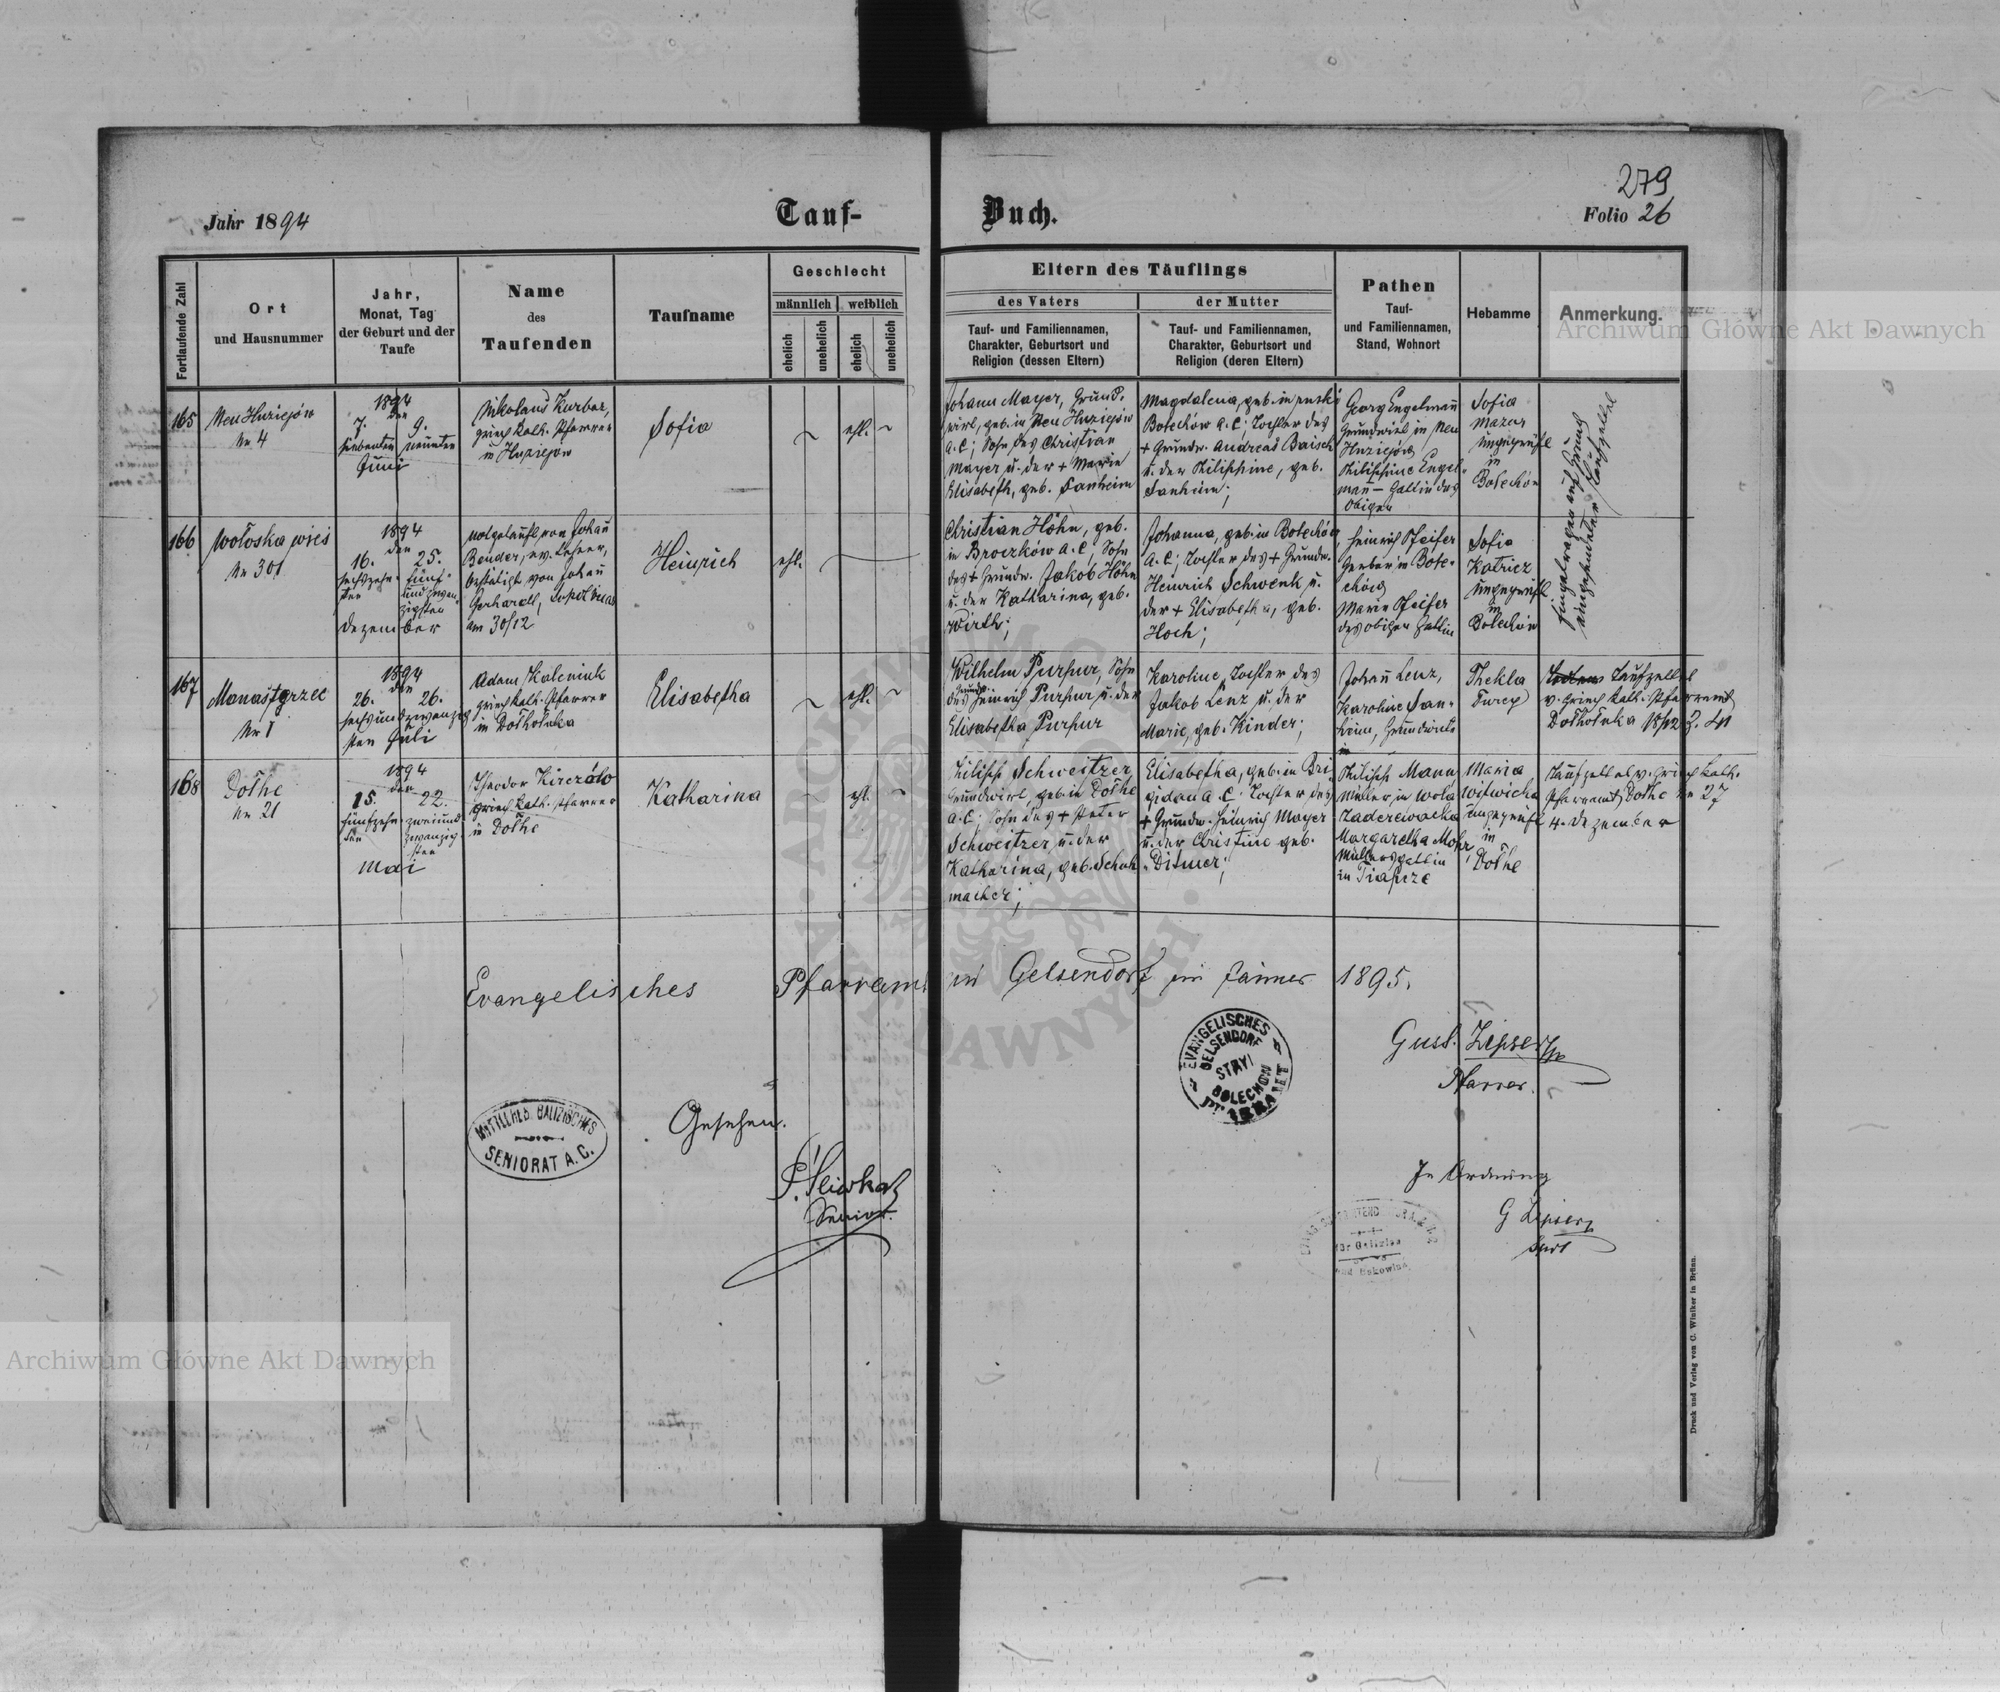 279
Jahr 1894
Tauf-
Buch.
Folio 26
Fortlaufende Zahl
Ort
und Hausnummer
Jahr,
Monat, Tag
der Geburt und der
Taufe
Name
des
Taufenden
Taufname
Geschlecht
männlich weiblich
ehelich
unehelich
ehelich
unehelich
Eltern des Täuflings
des Vaters
Tauf- und Familiennamen,
Charakter, Geburtsort und
Religion (dessen Eltern)
der Mutter
Tauf- und Familiennamen,
Charakter, Geburtsort und
Religion (deren Eltern)
Pathen
Tauf-
und Familiennamen,
Stand, Wohnort
Hebamme
Anmerkung.
Archiwum Główne Akt Dawnych
165
Neu Huziejów
Nr 4
1894
den
7. 9.
siebenten neunten
Juni
Nikolaus Kurbas,
griech. kath. Pfarrer
in Huziejow
Sofia
ehl.
Johann Mayer, Grund-
wirt, geb. in Neu Huziejów
A.C; Sohn des Christian
Mayer u. der + Marie
Elisabeth, geb. Janheim
Magdalena, geb. in
Bolechów A.C; Tochter des
+ Grundw. Andreas Baisch
u. der Philippine, geb.
Janheim;
Georg Engelmañ
Grundwirt in Neu
Huziejów
Philippine Engel-
mañ - Gattin des
Obigen
Sofia
Mazur
ungeprüft
in
Bolechów
Eingetragen auf Grund
eingesendeter Taufzettel
166
Wołoska wieś
Nr 301
1894
den
16. 25.
sechszehn- fünf-
ten und zwan-
zigsten
Dezember
notgetauft von Johañ
Bender, ev. Lehrer,
bestätigt von Johañ
Gerhardt,
am 30/12
Heinrich
ehl.
Christian Höhn, geb.
in Broczków A.C, Sohn
des + Grundw. Jakob Höhn
u. der Katharina, geb.
Wirth;
Johanna, geb. in Bolechów
A.C; Tochter des + Grundw.
Heinrich Schwenk u.
der + Elisabetha, geb.
Hoch;
Heinrich Pfeifer
Gerber in Bole-
chów
Marie Pfeifer
des obigen Gattin
Sofia
Katricz
ungeprüft
in
Bolechów
167
Manasterzec
Nr 1
1894
den
26. 26.
sechsundzwanzig
sten Juli
Adam Kaleniuk
griech. kath. Pfarrer
in Dołhołuka
Elisabetha
ehl.
Wilhelm Purpur, Sohn
des Grundw. Heinrich Purpur u. der
Elisabetha Purpur
Karoline, Tochter des
Jakob Lenz u. der
Marie, geb. Kinder;
Johañ Lenz,
Karoline Jan-
heim, Grundwirte
in
Thekla
Turey
Taufzettel
v. griech. kath. Pfarramt
Dołhołuka 18/12 Z. 41
168
Dołhe
Nr 21
1894
den
15. 22.
fünfzehn- zweiund
ten zwanzig-
sten
Mai
Theodor Kirczów
griech. kath. Pfarrer
in Dołhe
Katharina
ehl.
Philipp Schweitzer
Grundwirt, geb. in Dołhe
A.C; Sohn des + Peter
Schweitzer, u. der
Katharina, geb. Schuh
macher;
Elisabetha, geb. in Bri-
gidau A.C Tochter des
+ Grundw. Heinrich Mayer
u. der Christine geb.
Ditmer;
Philipp Mann
Müller, in Wola
Zaderewacka
Margaretha Mohr,
Müllersgattin
in Tiapcze
Maria
Witwicka
ungeprüft
in
Dołhe
Taufzettel v. griech. kath.
Pfarramt Dołhe Nr 27
4. Dezember
Evangelisches Pfarramt in Gelsendorf im Jänner 1895.
EVANGELISCHES
GELSENDORF
STRYJ
BOLECHOW
PFARRAMT
Gust. Zipser
Pfarrer.
MITTELRES GALIZISCHES
SENIORAT A.C.
Gesehen.
P. Sliwka
Senior.
In Ordnung
G Zipser
Supt
für Galizien
und Bukowina
Druck und Verlag von C. Winiker in Brünn.
Archiwum Główne Akt Dawnych
ARCHIWUM
AKT DAWNYCH